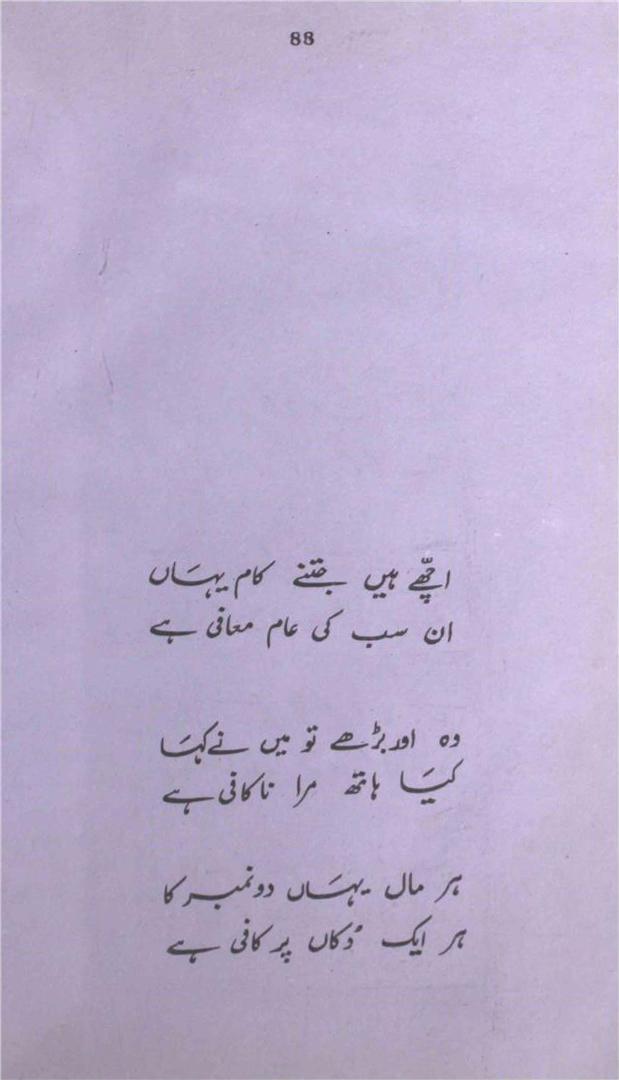 88
اچّھے ہیں جتنے کام یہاں
ان سب کی عام معافی ہے
وہ اور بڑھے تو میں نے کہا
کیا ہاتھ مرا ناکافی ہے
ہر مال یہاں دو نمبر کا
ہر ایک دُکاں پر کافی ہے